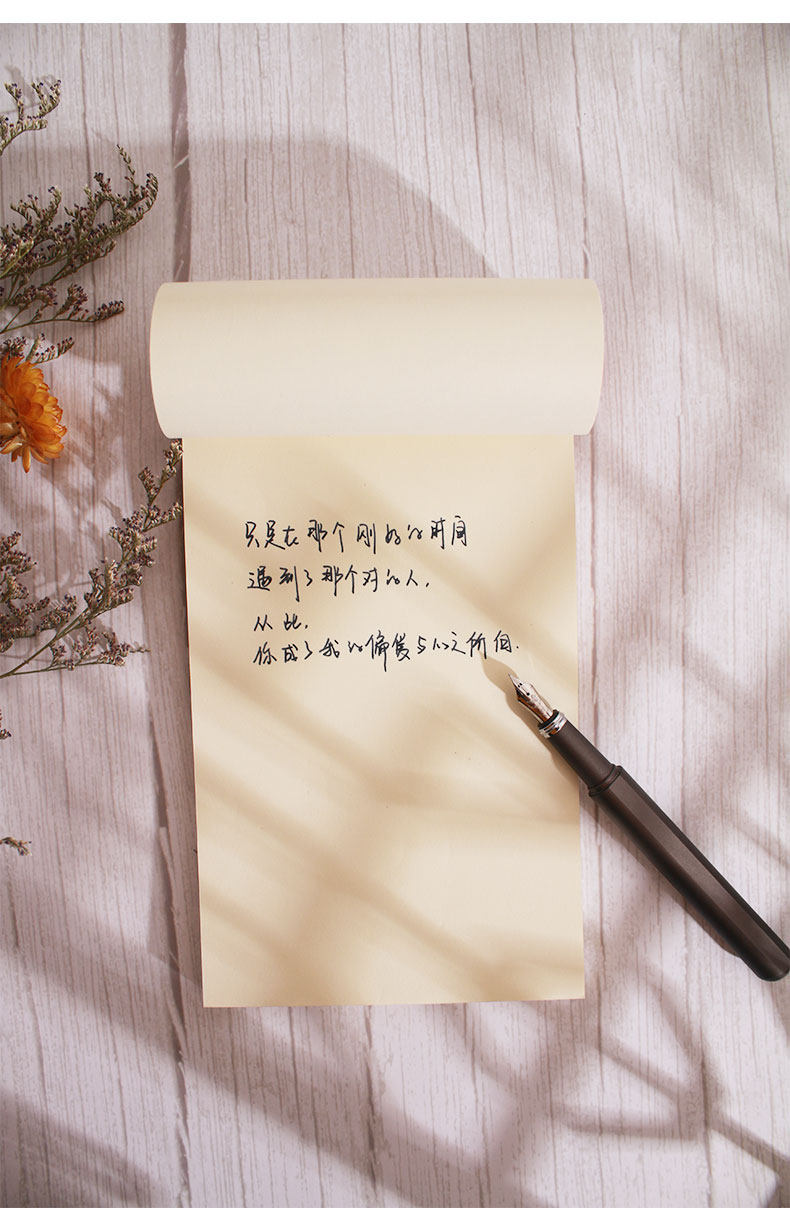 只是在那个刚好的时间
遇到了那个对的人,
从此,
你成了我的偏爱与心之所向.